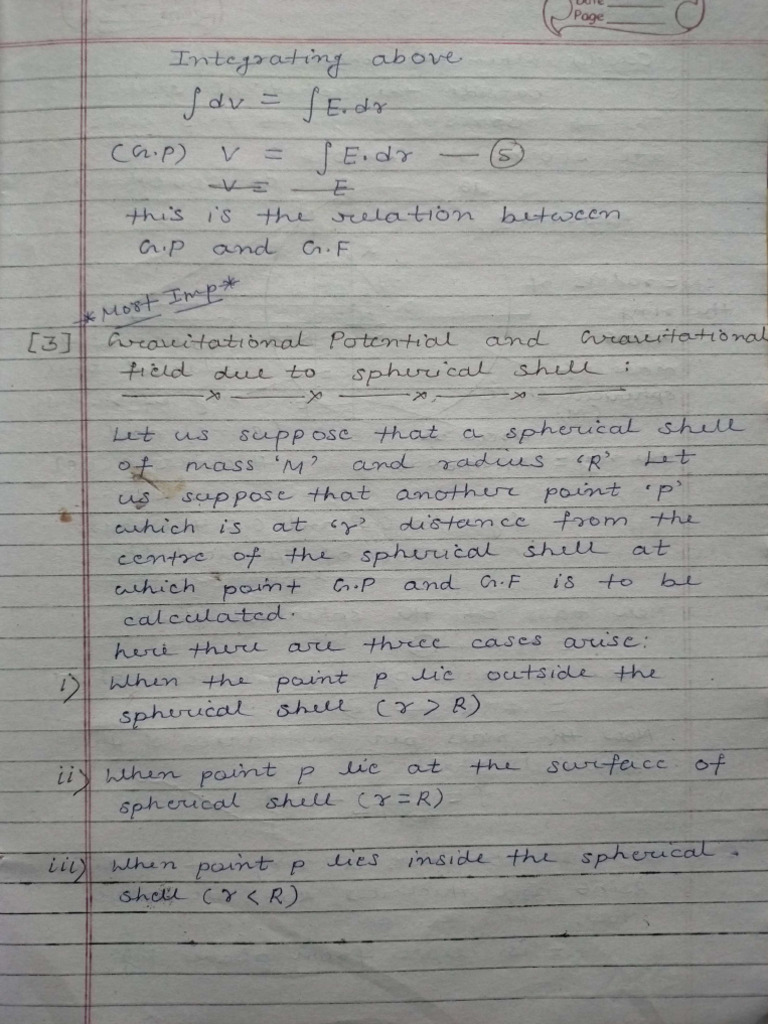 Date
Page
Integrating above
∫dv = ∫E.dr
(G.P) V = ∫E.dr — ⑤
V = E
this is the relation between
G.P and G.F
*Most Imp*
[3] Gravitational Potential and Gravitational
field due to spherical shell :
Let us suppose that a spherical shell
of mass 'M' and radius 'R' Let
us suppose that another point 'p'
which is at 'r' distance from the
centre of the spherical shell at
which point G.P and G.F is to be
calculated.
here there are three cases arise:
i) When the point p lie outside the
spherical shell (r > R)
ii) When point p lie at the surface of
spherical shell (r = R)
iii) When point p lies inside the spherical
shell (r < R)